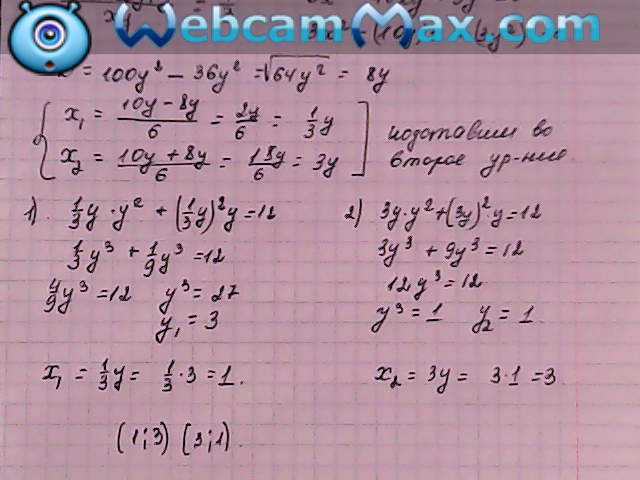 WebcamMax.com
= 100y² − 36y² = √64y² = 8y
x₁ = (10y − 8y)/6 = 2y/6 = 1/3 y
x₂ = (10y + 8y)/6 = 18y/6 = 3y
подставим во
второе ур-ние.
1) 1/3 y · y² + (1/3 y)² y = 12
1/3 y³ + 1/9 y³ = 12
4/9 y³ = 12 y³ = 27
y₁ = 3
x₁ = 1/3 y = 1/3 · 3 = 1.
2) 3y · y² + (3y)² · y = 12
3y³ + 9y³ = 12
12y³ = 12
y³ = 1 y₂ = 1.
x₂ = 3y = 3 · 1 = 3.
(1; 3) (3; 1)